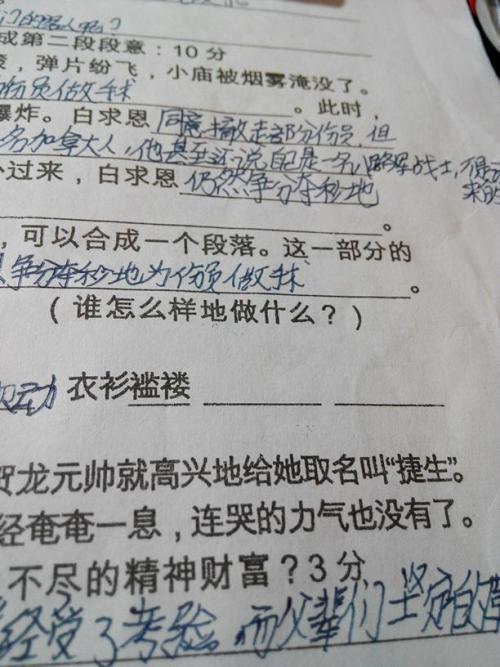 成第二段段意：10分
，弹片纷飞，小庙被烟雾淹没了。
伤员做手术。此时，
爆炸。白求恩同意撤走部分伤员，但
名加拿大人，他甚至还说自己是一名八路军战士，
过来，白求恩仍然争分夺秒地
。
，可以合成一个段落。这一部分的
争分夺秒地为伤员做手术。
（谁怎么样地做什么？）
动 衣衫褴褛
贺龙元帅就高兴地给她取名叫“捷生”。
经奄奄一息，连哭的力气也没有了。
不尽的精神财富？3分
经受了考验，而父辈们坚定的